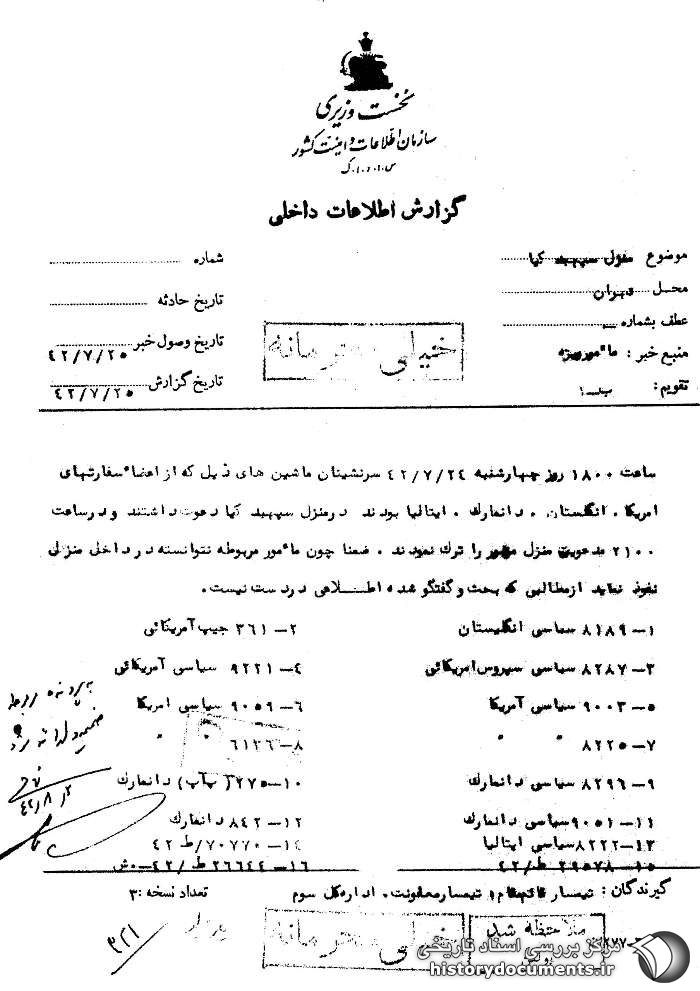 نخست وزیری
سازمان اطلاعات و امنیت کشور
س.ا.و.ا.ک
گزارش اطلاعات داخلی
موضوع منزل سپهبد کیا
محل تهران
عطف بشماره
منبع خبر : مأمور ویژه
تقویم : ب-۱
شماره
تاریخ حادثه
تاریخ وصول خبر ۴۲/۷/۲۵
تاریخ گزارش ۴۲/۷/۲۵
خیلی محرمانه
ساعت ۱۸۰۰ روز چهارشنبه ۴۲/۷/۲۴ سرنشینان ماشین های ذیل که از اعضاء سفارتهای
امریکا ، انگلستان ، دانمارک ، ایتالیا بودند در منزل سپهبد کیا دعوت داشتند و در ساعت
۲۱۰۰ مدعوین منزل مزبور را ترک نمودند . ضمنا چون مأمور مربوطه نتوانسته در داخل منزل
نفوذ نماید از مطالبی که بحث و گفتگو شده اطلاعی در دست نیست.
۱- ۸۱۸۹ سیاسی انگلیستان ۲- ۳۶۱ جیپ آمریکائی
۳- ۸۲۸۷ سیاسی سپروس امریکائی ۴- ۹۲۲۱ سیاسی آمریکائی
۵- ۹۰۰۳ سیاسی آمریکا ۶- ۹۰۵۹ سیاسی امریکا
۷- ۸۲۲۵ " " ۸- ۶۱۲۶ " "
۹- ۸۲۹۶ سیاسی دانمارک ۱۰- ۲۷۵ (پ آپ) دانمارک
۱۱- ۹۰۵۱ سیاسی دانمارک ۱۲- ۸۴۲ دانمارک
۱۳- ۸۲۲۲ سیاسی ایتالیا ۱۴- ۷۰۷۷۰/ط ۴۲
۱۵- ۲۹۵۷۸ ط/۴۲ ۱۶- ۲۶۶۴۴ ط /۴۲-ش
با پرونده مربوطه
ضمیمه و ارائه شود
۴۲/۸/۲
گیرندگان : تیمسار قائم مقام ، تیمسار معاونت ، اداره کل سوم تعداد نسخه :۳
خیلی محرمانه
ملاحظه شد
۳۲۱
مرکز بررسی اسناد تاریخی
historydocuments.ir